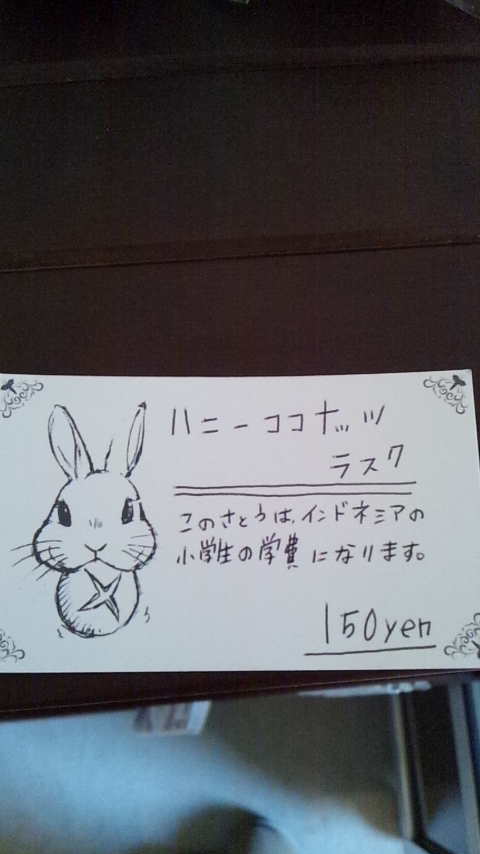 ハニーココナッツ
ラスク
このさとうは、インドネシアの
小学生の学費になります。
150yen